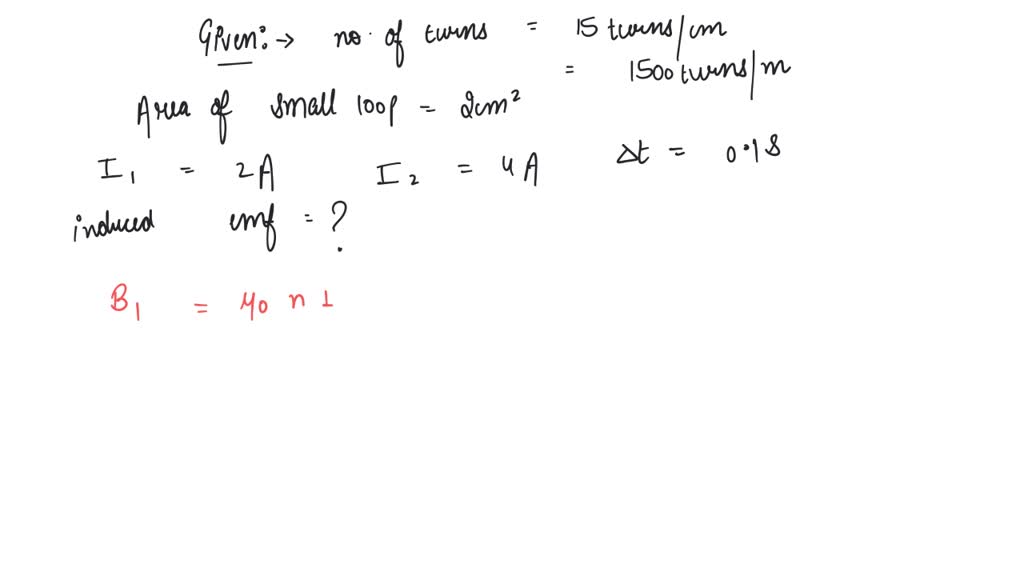 Given:→ no. of turns = 15 turns/cm
= 1500 turns/m
Area of small loop = 2cm²
I₁ = 2A I₂ = 4A Δt = 0.1s
induced emf = ?
B₁ = μ₀ n I